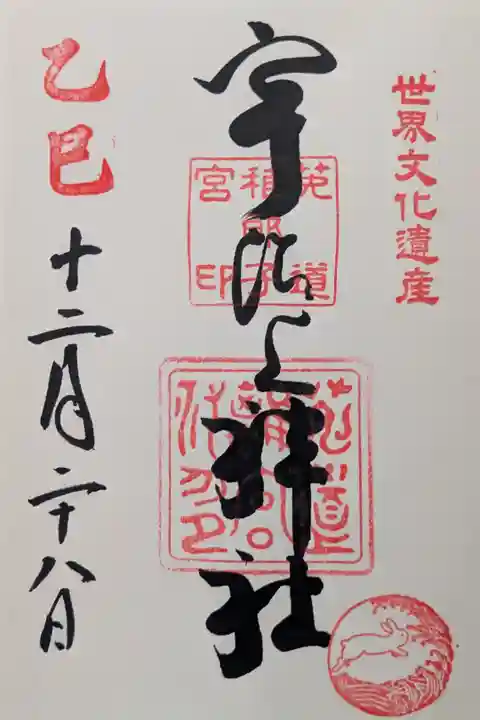 世界文化遺産
宇治上神社
菟道稚郎子宮印
乙巳
十二月二十八日